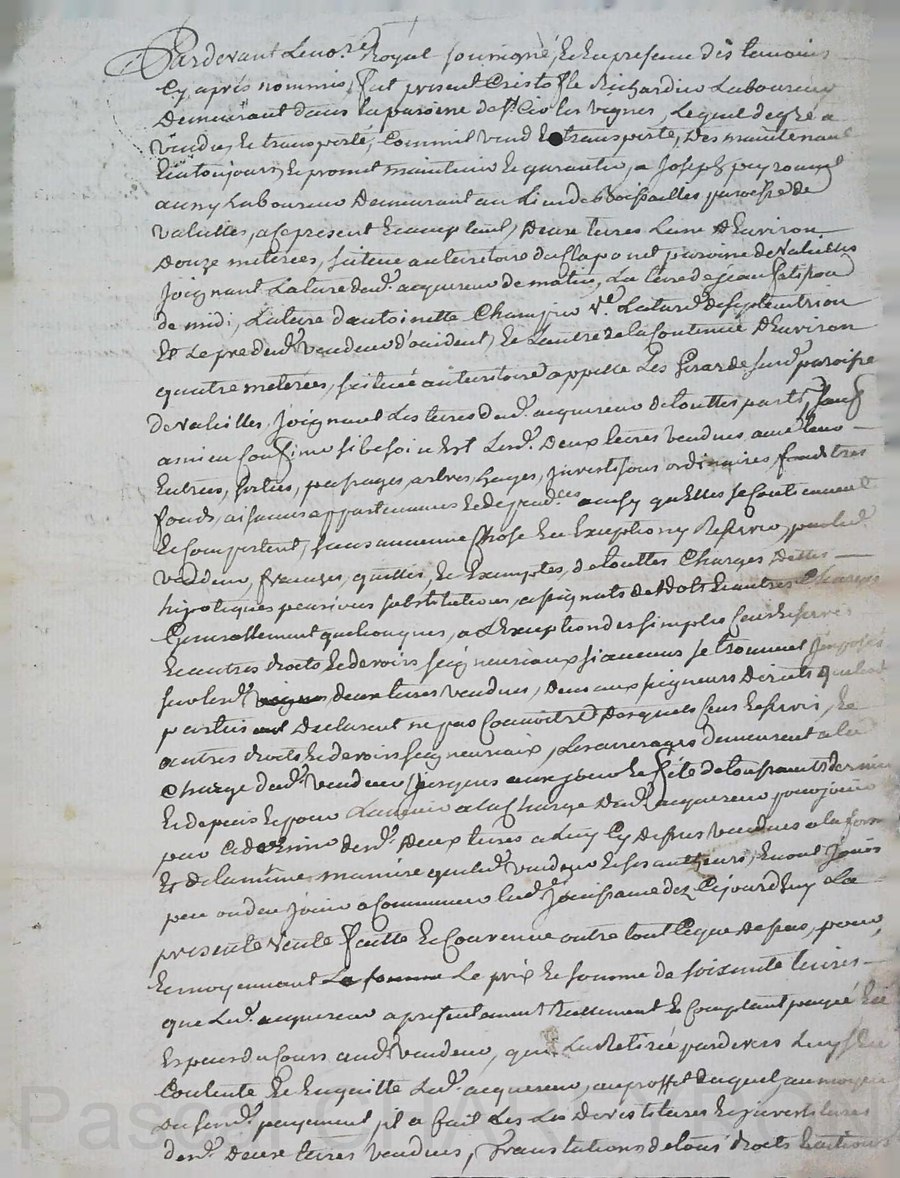 Pardevant Le no.re Royal soussigné, Et En presence des temoins
Cy après nommés, fut present Cristofle Richardier Laboureur
Demeurant dans la paroisse de St les vignes, Lequel de gré a
vendu, Et transporté, Comme il vend Et transporte, Des maintenant
Et a toujours, Et promet maintenir Et garantir, a Joseph peyronnel
aussy Laboureur Demeurant au Lieu de paroisse de
valeilles, a ce present Et acceptant, Deux terres Lune D'Environ
Douze meterées, scituée au territoire du paroisse de valeilles
Joignant La terre dud. acquereur de matin, La terre de jean
de midi, La terre d'antoinette ve. Laturd. de septentrion
Et Le pre dud. vendeur d'occident, Et L'autre de la Contenue D'Environ
quatre meterées, scituée au territoire appellé Les Girardes surd. paroisse
de valeilles, Joignant Les terres dud. acquereur de touttes parts, sauf
a mieux Confiner si besoin Est Lesd. Deux terres vendues avec Leurs
Entrées, sorties, passages, arbres, hayes, ordinaires, fonds tres
fonds, aisances appartenances Et dependces. ainsy qu'Elles se Contiennent
Et Comportent, sans aucunne Chose En Exeption ny Reserver, par led.
vendeur, franches, quittes, Et Exemptes, de touttes Charges Dettes
hipoteques pensions substitutions, assignats de dots Et autres Charges
Generallement quelconques, a L'Exeption des simples Cens Et servis
Et autres droits Et devoirs seigneuriaux si aucuns se trouvent Imposés
sur lesd. deux terres vendues, Deus aux seigneurs Directs que les
parties ont Declarent ne pas Connoitre Desquels Cens Et servis, Et
autres droits Et devoirs seigneuriaux, Les arrerages demeurent a la
Charge dud. vendeur jusques au jour Et fête de toussaints dernier
Et depuis Led. jour a la Charge dud. acquereur pour jouir
par Ce dernier desd. Deux terres a Luy Cy Dessus vendues a la forme
Et de la même maniere que led. vendeur Et ses autheurs, En ont Jouis
peu ou deu jouir a Commencer lad. Jouissance dez Cejourd'huy La
presente vente faitte Et Convenue outre tout Ceque dessus, pour
Et moyennant La somme Le prix Et somme de soixante livres
que Led. acquereur a presentement Reellement Et Comptant payée En
Especes du Cours aud. vendeur, qui La Retirée pardevers Luy s'En
Contente Et En quitte Led. acquereur, au proffit duquel au moyen
du susd. payement, il a fait Les Devestitures Et investitures
desd. Deux terres vendues, Translations de tous droits Et actions
Pascal